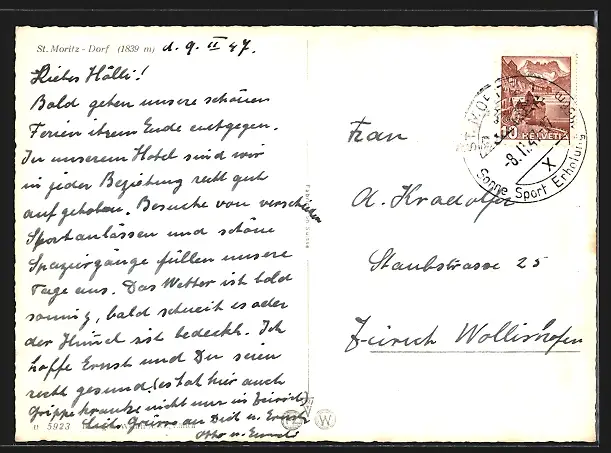 St. Moritz - Dorf (1839 m) d. 9. II 47.
Liebes Hölli!
Bald gehen unsere schönen
Ferien ihrem Ende entgegen.
In unserem Hotel sind wir
in jeder Beziehung recht gut
aufgehoben. Besuche von verschieden
Sportanlässen und schöne
Spaziergänge füllen unsere
Tage aus. Das Wetter ist bald
sonnig, bald schneit es oder
der Himmel ist bedeckt. Ich
hoffe Ernst und Du seien
recht gesund (es hat hier auch
Grippekranke nicht nur in Zürich)
Lieb. Grüsse an Dich u. Ernst
Otto u.
U 5923
W
HELVETIA
-8.II.47
X
Sonne Sport Erholung
Frau
A. Kradolfer
Staubstrasse 25
Zürich Wollishofen